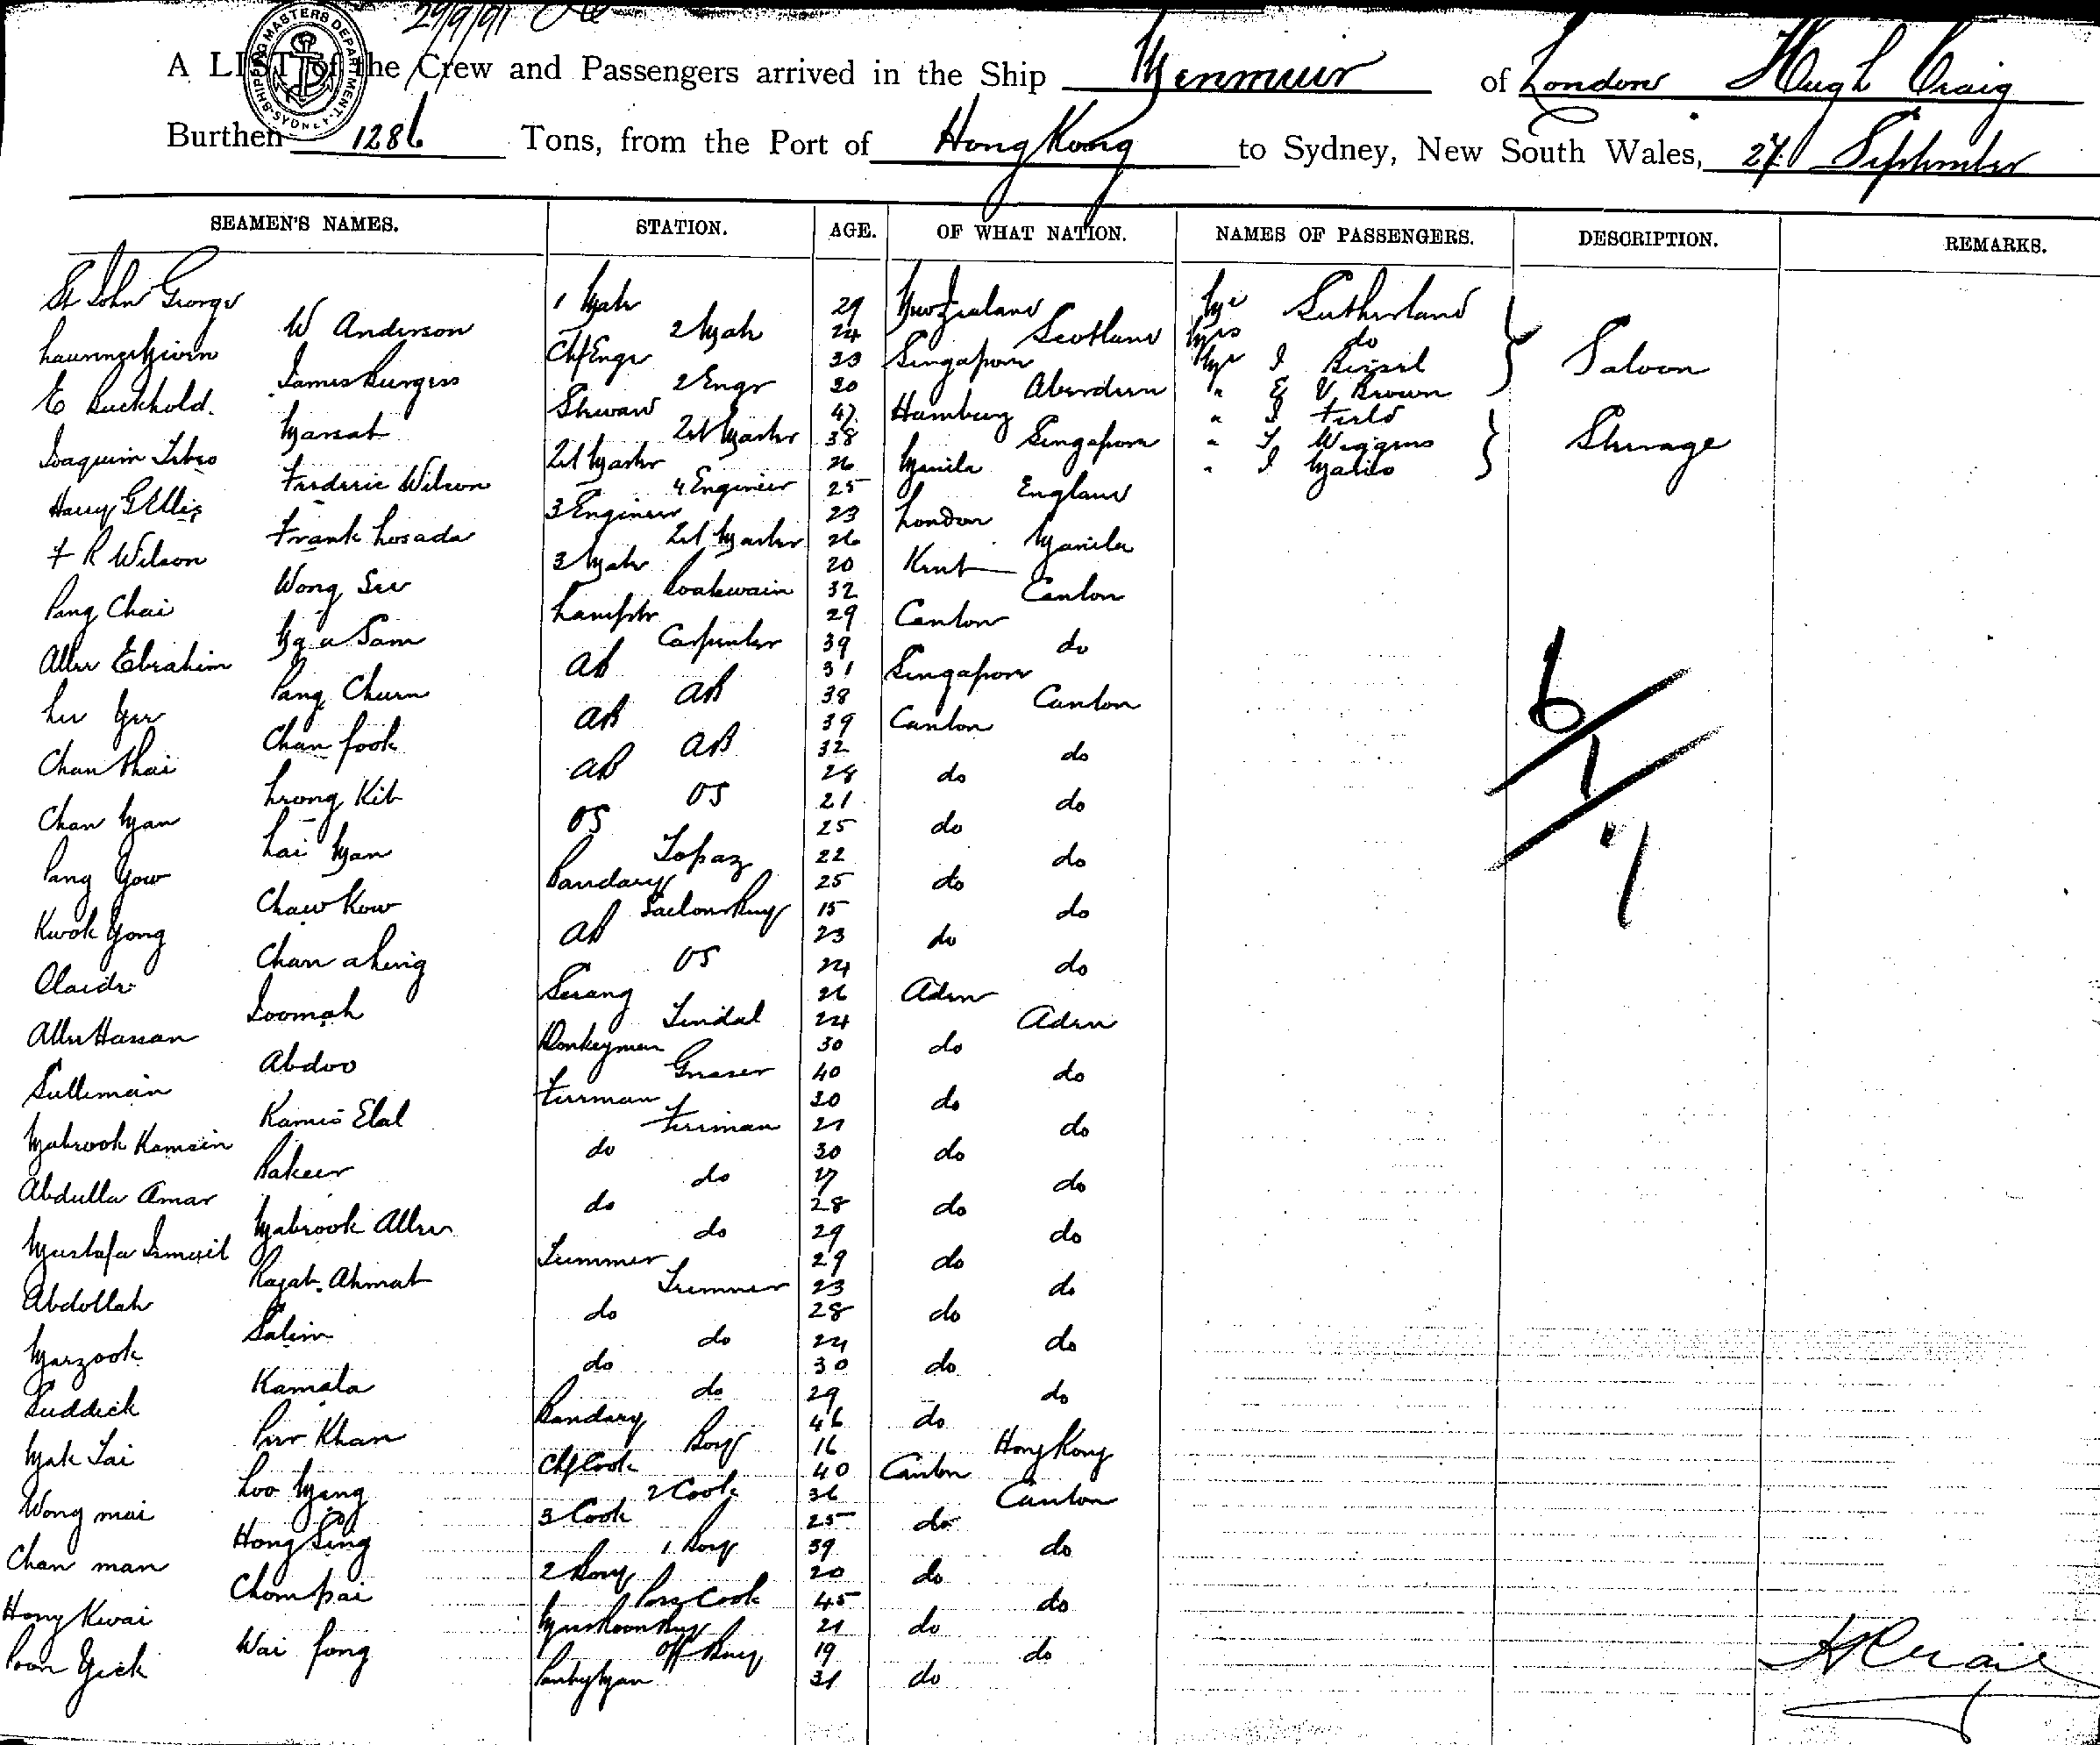 29/9/91
SHIPPING MASTERS DEPARTMENT SYDNEY
A LIST of the Crew and Passengers arrived in the Ship Menmuir of London Hugh Craig
Burthen 1286 Tons, from the Port of Hong Kong to Sydney, New South Wales, 27 September
SEAMEN'S NAMES. STATION. AGE. OF WHAT NATION. NAMES OF PASSENGERS. DESCRIPTION. REMARKS.
St John George 1 Mate 29 New Zealand Mr Sutherland
W Anderson 2 Mate 24 Scotland Mrs do
Chf Engr 33 Singapore Mr J Saloon
James Burgess 2 Engr 30 Aberdeen " E V Brown
E Buckhold. Steward 47 Hamburg " J Field
38 Singapore " T Wiggins Steerage
Joaquim 26 Manila " J
Frederic Wilson 4 Engineer 25 England
Harry G Ellis 3 Engineer 23 London
Frank Losada 26 Manila
F R Wilson 3 Mate 20 Kent
Wong See Boatswain 32 Canton
Pang Chai Lamptr 29 Canton
Ng a Sam Carpenter 39 do
Allee Ebrahim AB 31 Singapore
Pang Chuen AB 38 Canton
Lee Yee AB 39 Canton
Chan fook AB 32 do
Chan Thai AB 28 do
Leong Kit OS 21 do
Chan Man OS 25 do
Lai Man Topaz 22 do
Pang Yow Bandary 25 do
Chaw Kow Saloon Boy 15 do
Kwok Yong AB 23 do
Chan a hing OS 24 do
Serang 26 Aden
Joomah Tindal 24 Aden
Allee Hassan Donkeyman 30 do
Abdoo Greaser 40 do
Sulleman Fireman 30 do
Kamis Elal Fireman 27 do
Mabrook Kamsin do 30 do
Bakeer do 27 do
Abdulla Amar do 28 do
Mabrook Allee do 29 do
Mustafa Ismail Trimmer 29 do
Rajab Ahmat Trimmer 23 do
Abdollah do 28 do
Salim do 24 do
Marzook do 30 do
Kamala do 29 do
Suddick Bandary 46 do
Peer Khan Boy 16 Hong Kong
Mak Tai Chf Cook 40 Canton
Loo Mang 2 Cook 36 Canton
Wong mai 3 Cook 25 do
Hong Sing 1 Boy 39 do
Chan man 2 Boy 20 do
Chom pai Cook 45 do
Hong Kwai Messroom Boy 21 do
Wai fong Off Boy 19 do
Poon Yick Pantryman 31 do
6
1
7
H Craig